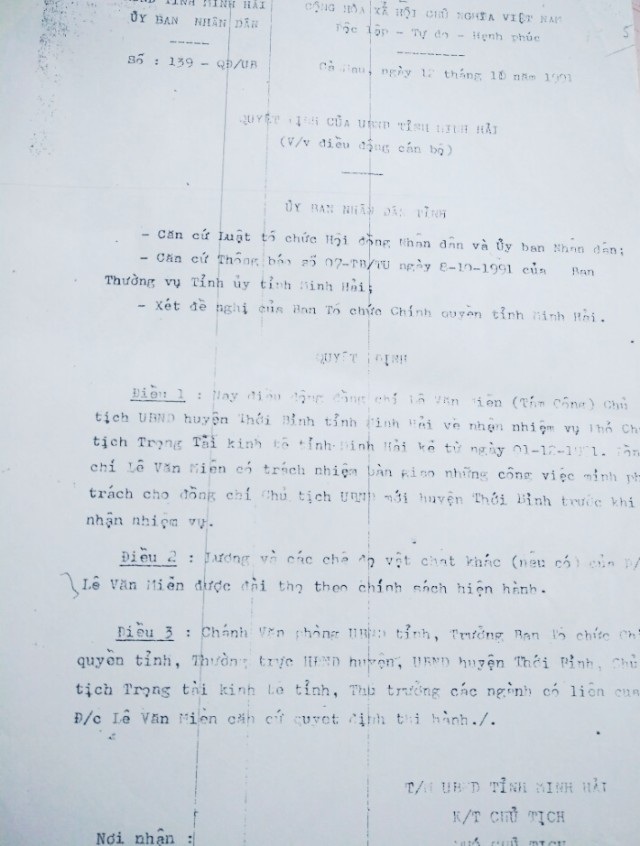 UBND TỈNH MINH HẢI CỘNG HÒA XÃ HỘI CHỦ NGHĨA VIỆT NAM
ỦY BAN NHÂN DÂN Độc lập - Tự do - Hạnh phúc
Số : 139 - QĐ/UB Cà Mau, ngày 12 tháng 10 năm 1991
QUYẾT ĐỊNH CỦA UBND TỈNH MINH HẢI
(V/v điều động cán bộ)
ỦY BAN NHÂN DÂN TỈNH
- Căn cứ Luật tổ chức Hội đồng Nhân dân và Ủy ban Nhân dân;
- Căn cứ Thông báo số 07-TB/TU ngày 8-10-1991 của Ban
Thường vụ Tỉnh ủy tỉnh Minh Hải;
- Xét đề nghị của Ban Tổ chức Chính quyền tỉnh Minh Hải.
QUYẾT ĐỊNH
Điều 1 : Nay điều động đồng chí Lê Văn Miễn (Tám Công) Chủ
tịch UBND huyện Thới Bình tỉnh Minh Hải về nhận nhiệm vụ Phó Chủ
tịch Trọng Tài kinh tế tỉnh Minh Hải kể từ ngày 01-12-1991.
chí Lê Văn Miễn có trách nhiệm bàn giao những công việc mình ph
trách cho đồng chí Chủ tịch UBND mới huyện Thới Bình trước khi
nhận nhiệm vụ.
Điều 2 : Lương và các chế độ vật chất khác (nếu có) của Đ/
Lê Văn Miễn được đài thọ theo chính sách hiện hành.
Điều 3 : Chánh Văn phòng UBND tỉnh, Trưởng Ban Tổ chức Ch
quyền tỉnh, Thường trực HĐND huyện, UBND huyện Thới Bình, Chủ
tịch Trọng tài kinh tế tỉnh, Thủ trưởng các ngành có liên quan
Đ/c Lê Văn Miễn căn cứ quyết định thi hành./.
T/M UBND TỈNH MINH HẢI
K/T CHỦ TỊCH
PHÓ CHỦ TỊCH
Nơi nhận :